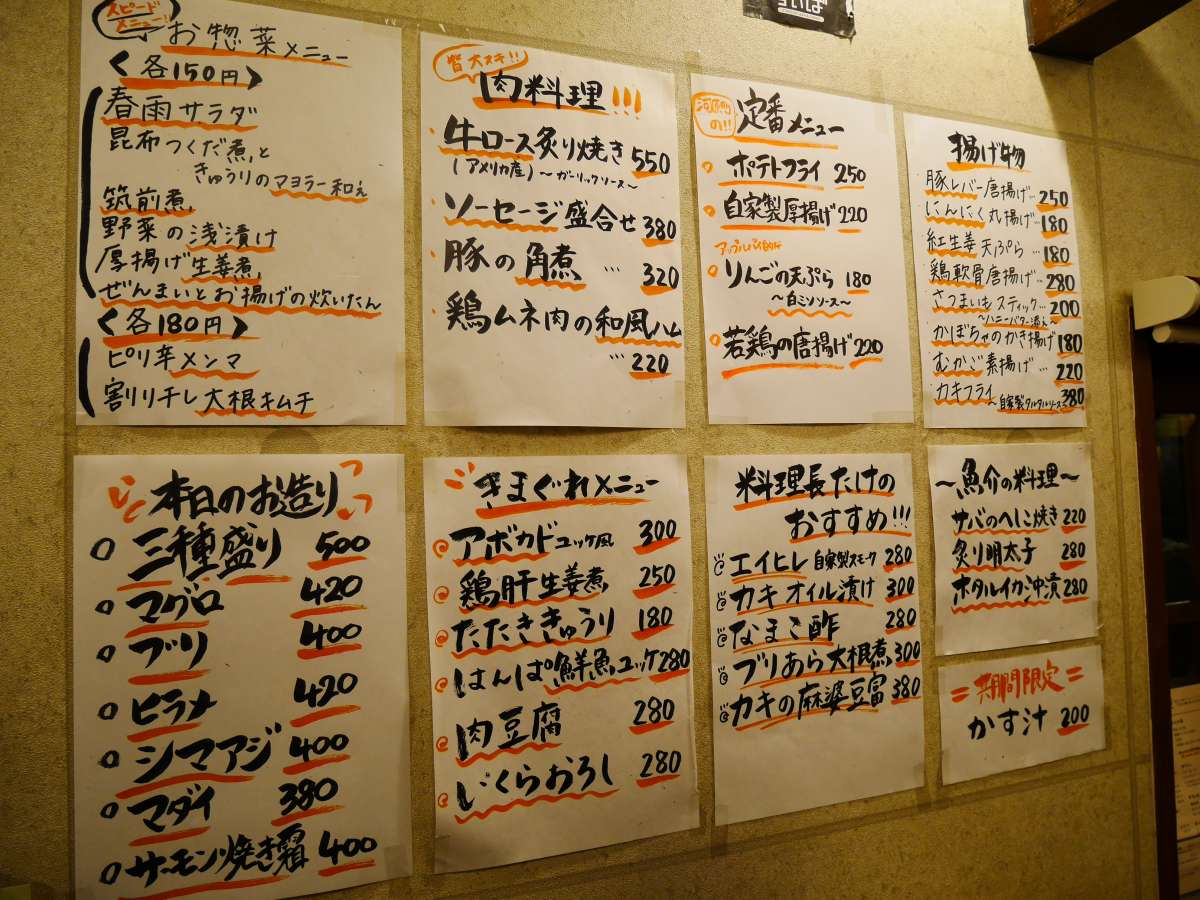 スピード
メニュー!!
お惣菜メニュー
<各150円>
春雨サラダ
昆布つくだ煮と
きゅうりのマヨラー和え
筑前煮
野菜の浅漬け
厚揚げ生姜煮
ぜんまいとお揚げの炊いたん
<各180円>
ピリ辛メンマ
割りチレ大根キムチ
皆大スキ!!
肉料理!!!
牛ロース炙り焼き 550
(アメリカ産)〜ガーリックソース〜
ソーセージ盛合せ 380
豚の角煮 … 320
鶏ムネ肉の和風ハム
… 220
の!!
定番メニュー
ポテトフライ 250
自家製厚揚げ 220
りんごの天ぷら 180
〜白ミソソース〜
若鶏の唐揚げ 220
揚げ物
豚レバー唐揚げ… 250
にんにく丸揚げ… 180
紅生姜天ぷら… 180
鶏軟骨唐揚げ… 280
さつまいもスティック… 200
〜ハニーバター添え〜
かぼちゃのかき揚げ 180
むかご素揚げ… 220
カキフライ 380
〜自家製タルタルソース〜
本日のお造り
三種盛り 500
マグロ 420
ブリ 400
ヒラメ 420
シマアジ 400
マダイ 380
サーモン焼き霜 400
きまぐれメニュー
アボカドユッケ風 300
鶏肝生姜煮 250
たたききゅうり 180
はんぱ鮮魚ユッケ 280
肉豆腐 280
いくらおろし 280
料理長たけの
おすすめ!!!
エイヒレ自家製スモーク 280
カキオイル漬け 300
なまこ酢 280
ブリあら大根煮 300
カキの麻婆豆富 380
〜魚介の料理〜
サバのへしこ焼き 220
炙り明太子 280
ホタルイカ沖漬 280
=期間限定=
かす汁 200